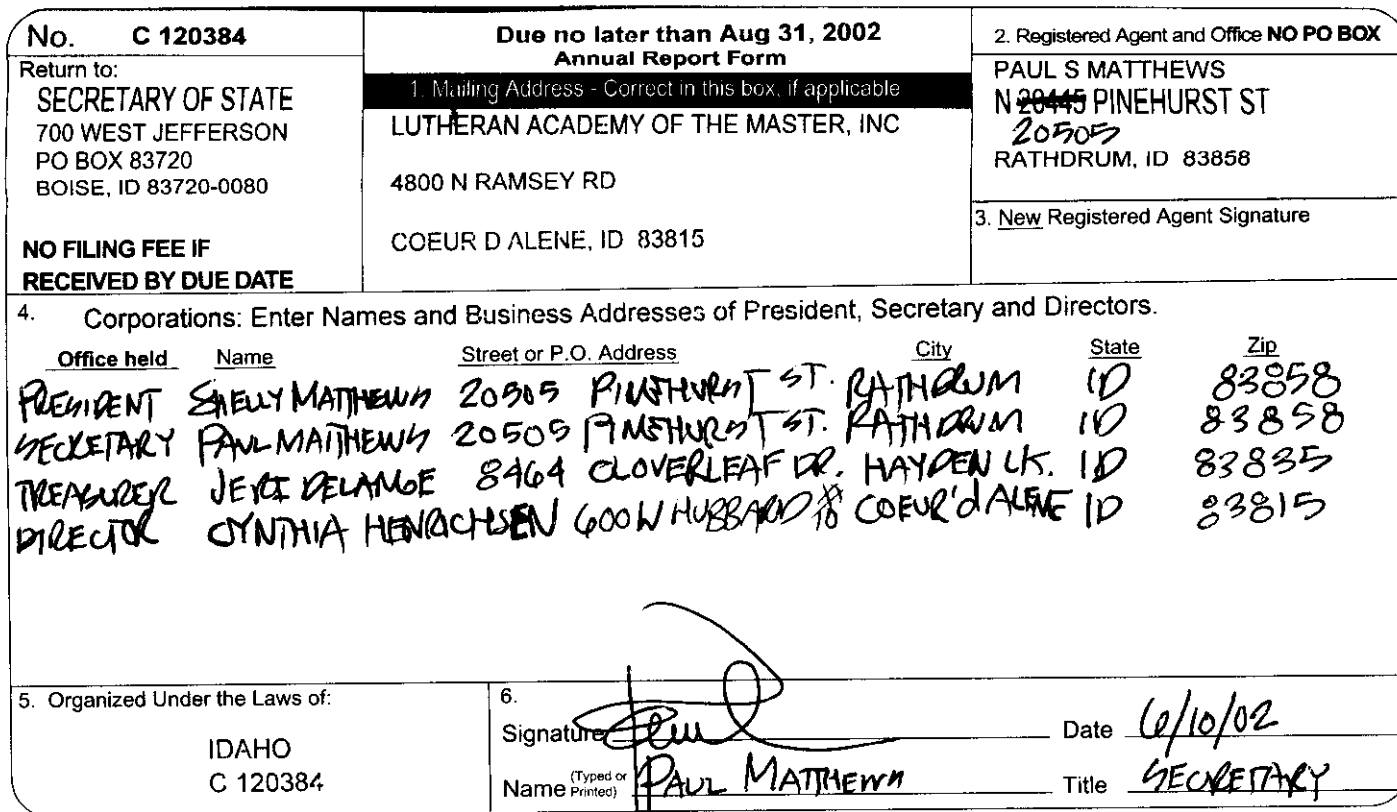 No. C 120384
Return to:
SECRETARY OF STATE
700 WEST JEFFERSON
PO BOX 83720
BOISE, ID 83720-0080
NO FILING FEE IF
RECEIVED BY DUE DATE
Due no later than Aug 31, 2002
Annual Report Form
1. Mailing Address - Correct in this box, if applicable
LUTHERAN ACADEMY OF THE MASTER, INC
4800 N RAMSEY RD
COEUR D ALENE, ID 83815
2. Registered Agent and Office NO PO BOX
PAUL S MATTHEWS
N 20445 PINEHURST ST
20505
RATHDRUM, ID 83858
3. New Registered Agent Signature
4. Corporations: Enter Names and Business Addresses of President, Secretary and Directors.
Office held Name Street or P.O. Address City State Zip
PRESIDENT SHELLY MATTHEWS 20505 PINEHURST ST. RATHDRUM ID 83858
SECRETARY PAUL MATTHEWS 20505 PINEHURST ST. RATHDRUM ID 83858
TREASURER JERI DELANGE 8464 CLOVERLEAF DR. HAYDEN LK. ID 83835
DIRECTOR CYNTHIA HENRICHSEN 600 W HUBBARD #10 COEUR'd ALENE ID 83815
5. Organized Under the Laws of:
IDAHO
C 120384
6.
Signature Paul Date 6/10/02
Name (Typed or Printed) PAUL MATTHEWS Title SECRETARY